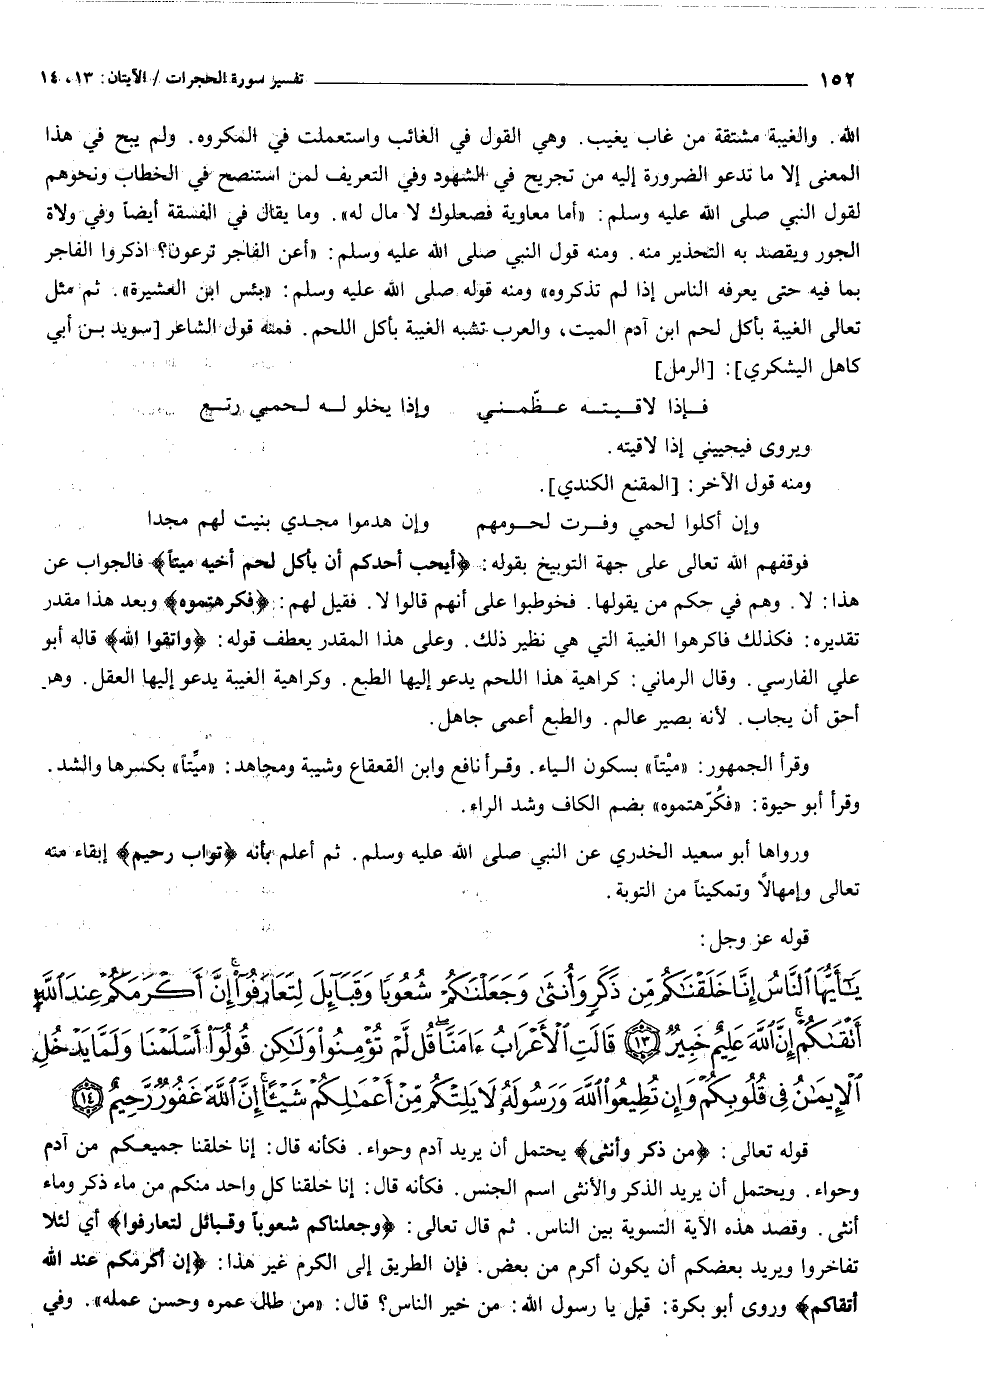 ١٥٢ تفسير سورة الحجرات / الآيتان: ١٣، ١٤
الله. والغيبة مشتقة من غاب يغيب. وهي القول في الغائب واستعملت في المكروه. ولم يبح في هذا
المعنى إلا ما تدعو الضرورة إليه من تجريح في الشهود وفي التعريف لمن استنصح في الخطاب ونحوهم
لقول النبي صلى الله عليه وسلم: «أما معاوية فصعلوك لا مال له». وما يقال في الفسقة أيضاً وفي ولاة
الجور ويقصد به التحذير منه. ومنه قول النبي صلى الله عليه وسلم: «أعن الفاجر ترعون؟ اذكروا الفاجر
بما فيه حتى يعرفه الناس إذا لم تذكروه» ومنه قوله صلى الله عليه وسلم: «بئس ابن العشيرة». ثم مثل
تعالى الغيبة بأكل لحم ابن آدم الميت، والعرب تشبه الغيبة بأكل اللحم. فمنه قول الشاعر [سويد بن أبي
كاهل اليشكري]: [الرمل]
فإذا لاقيته عظّمني وإذا يخلو له لحمي رتع
ويروى فيحييني إذا لاقيته.
ومنه قول الآخر: [المقنع الكندي].
وإن أكلوا لحمي وفرت لحومهم وإن هدموا مجدي بنيت لهم مجدا
فوقفهم الله تعالى على جهة التوبيخ بقوله: ﴿أيحب أحدكم أن يأكل لحم أخيه ميتاً﴾ فالجواب عن
هذا: لا. وهم في حكم من يقولها. فخوطبوا على أنهم قالوا لا. فقيل لهم: ﴿فكرهتموه﴾ وبعد هذا مقدر
تقديره: فكذلك فاكرهوا الغيبة التي هي نظير ذلك. وعلى هذا المقدر يعطف قوله: ﴿واتقوا الله﴾ قاله أبو
علي الفارسي. وقال الرماني: كراهية هذا اللحم يدعو إليها الطبع. وكراهية الغيبة يدعو إليها العقل. وهو
أحق أن يجاب. لأنه بصير عالم. والطبع أعمى جاهل.
وقرأ الجمهور: «ميْتاً» بسكون الياء. وقرأ نافع وابن القعقاع وشيبة ومجاهد: «ميِّتاً» بكسرها والشد.
وقرأ أبو حيوة: «فكُرّهتموه» بضم الكاف وشد الراء.
ورواها أبو سعيد الخدري عن النبي صلى الله عليه وسلم. ثم أعلم بأنه ﴿تواب رحيم﴾ إبقاء منه
تعالى وإمهالًا وتمكيناً من التوبة.
قوله عز وجل:
يَٰٓأَيُّهَا ٱلنَّاسُ إِنَّا خَلَقْنَٰكُم مِّن ذَكَرٍ وَأُنثَىٰ وَجَعَلْنَٰكُمْ شُعُوبًا وَقَبَآئِلَ لِتَعَارَفُوٓا۟ إِنَّ أَكْرَمَكُمْ عِندَ ٱللَّهِ
أَتْقَىٰكُمْ إِنَّ ٱللَّهَ عَلِيمٌ خَبِيرٌ ١٣ قَالَتِ ٱلْأَعْرَابُ ءَامَنَّا قُل لَّمْ تُؤْمِنُوا۟ وَلَٰكِن قُولُوٓا۟ أَسْلَمْنَا وَلَمَّا يَدْخُلِ
ٱلْإِيمَٰنُ فِى قُلُوبِكُمْ وَإِن تُطِيعُوا۟ ٱللَّهَ وَرَسُولَهُۥ لَا يَلِتْكُم مِّنْ أَعْمَٰلِكُمْ شَيْـًٔا إِنَّ ٱللَّهَ غَفُورٌ رَّحِيمٌ ١٤
قوله تعالى: ﴿من ذكر وأنثى﴾ يحتمل أن يريد آدم وحواء. فكأنه قال: إنا خلقنا جميعكم من آدم
وحواء. ويحتمل أن يريد الذكر والأنثى اسم الجنس. فكأنه قال: إنا خلقنا كل واحد منكم من ماء ذكر وماء
أنثى. وقصد هذه الآية التسوية بين الناس. ثم قال تعالى: ﴿وجعلناكم شعوباً وقبائل لتعارفوا﴾ أي لئلا
تفاخروا ويريد بعضكم أن يكون أكرم من بعض. فإن الطريق إلى الكرم غير هذا: ﴿إن أكرمكم عند الله
أتقاكم﴾ وروى أبو بكرة: قيل يا رسول الله: من خير الناس؟ قال: «من طال عمره وحسن عمله». وفي